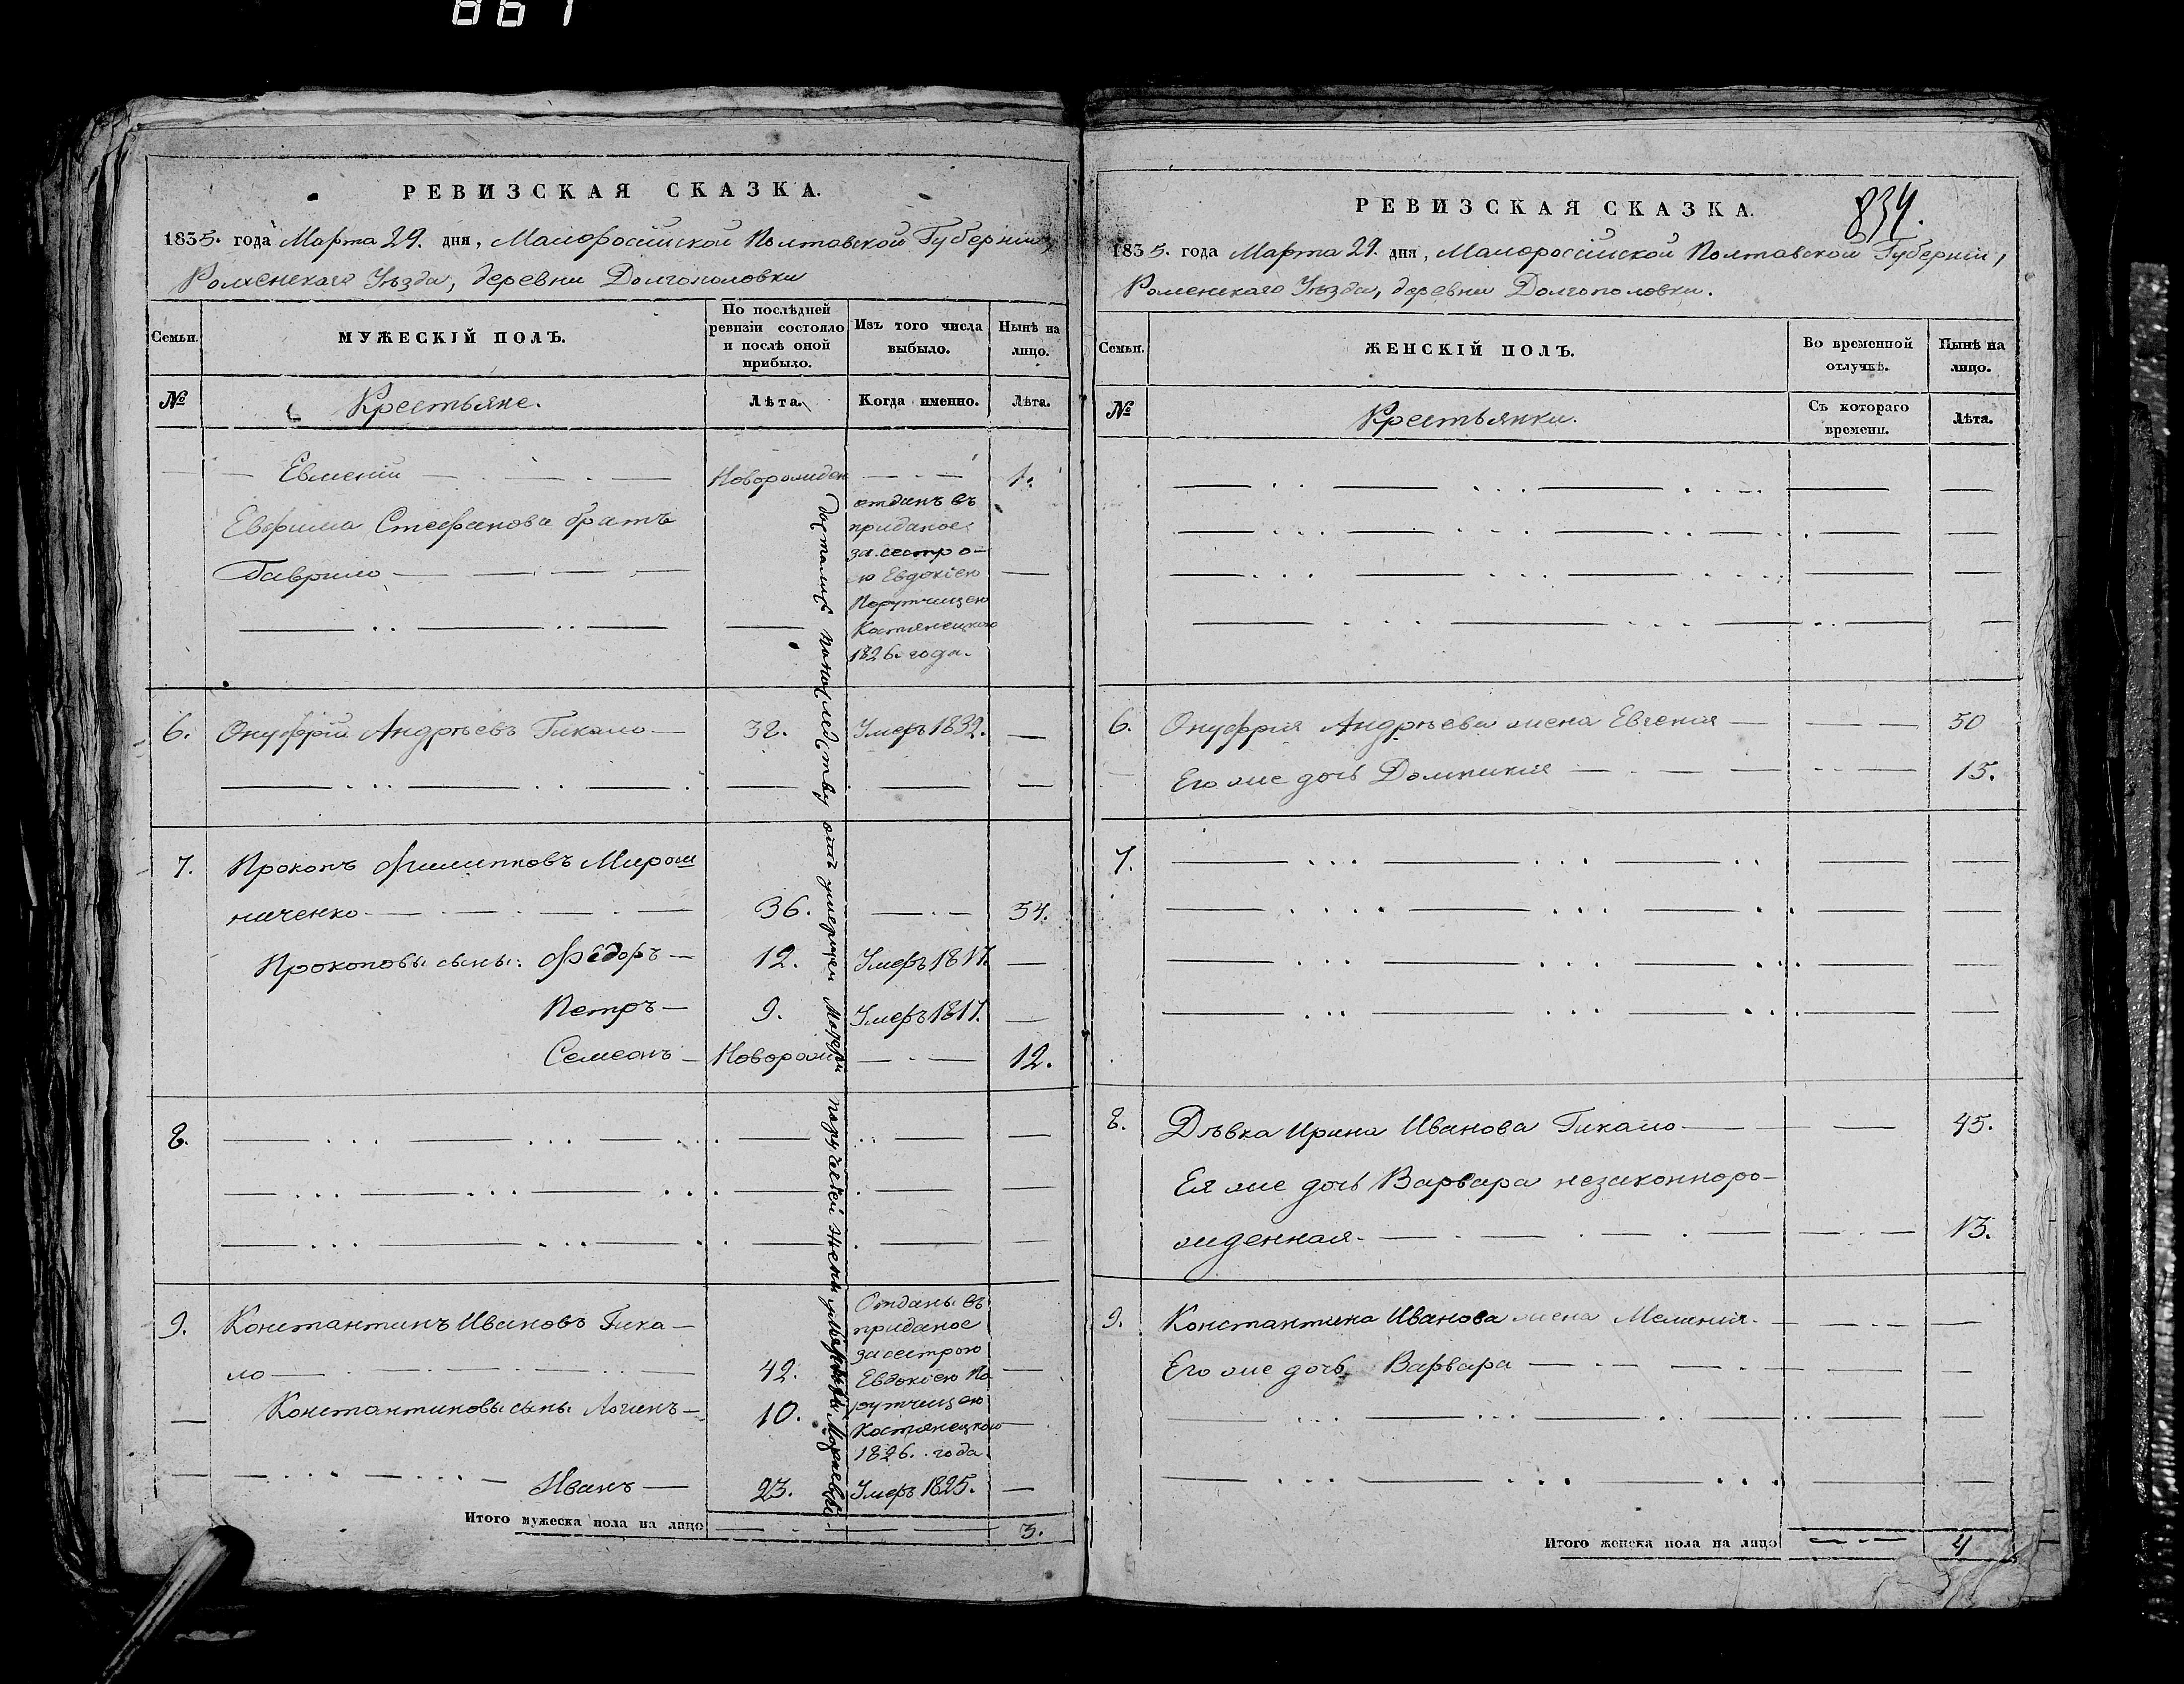 861
РЕВИЗСКАЯ СКАЗКА.
1835. года Марта 29. дня, Малоросiйской Полтавской Губернiи,
Роменскаго Уѣзда, деревни Долгополовки
Семьи.
МУЖЕСКIЙ ПОЛЪ.
По послѣдней
ревизiи состояло
и послѣ оной
прибыло.
Изъ того числа
выбыло.
Нынѣ на
лицо.
№
Крестьяне.
Лѣта.
Когда именно.
Лѣта.
Евменiй
Новорожден
1.
Евфима Стефанова братъ
Гаврило
отданъ въ
приданое
за сестро-
ю Евдокiею
Порутчицею
Костенецкою
1826. года.
6. Онуфрiй Андрѣевъ Гикало 38. Умеръ 1832.
7. Прокопъ Филипповъ Мирош
ниченко 36. 54.
Прокоповы сыны: Фёдоръ 12. Умеръ 1817.
Петръ 9. Умеръ 1817.
Семеонъ Новорож 12.
8.
9. Константинъ Ивановъ Гика-
ло 42.
Константиновы сыны Логинъ 10.
Отданы въ
приданое
за сестрою
Евдокiею По
рутчицею
Костенецкою
1826. года
Иванъ 23. Умеръ 1825.
Итого мужеска пола на лицо 3.
достались по наследству отъ умершей
834.
РЕВИЗСКАЯ СКАЗКА.
1835. года Марта 29. дня, Малоросiйской Полтавской Губернiи,
Роменскаго Уѣзда, деревни Долгополовки.
Семьи.
ЖЕНСКIЙ ПОЛЪ.
Во временной
отлучкѣ.
Нынѣ на
лицо.
№
Крестьянки.
Съ котораго
времени.
Лѣта.
6. Онуфрiя Андрѣева жена Евгенiя 50
Его же дочь Домникия 15.
7.
8. Дѣвка Ирина Иванова Гикало 45.
Ея же дочь Варвара незаконноро-
жденная. 13.
9. Константина Иванова жена Меланiя.
Его же дочь Варвара
Итого женска пола на лицо 4